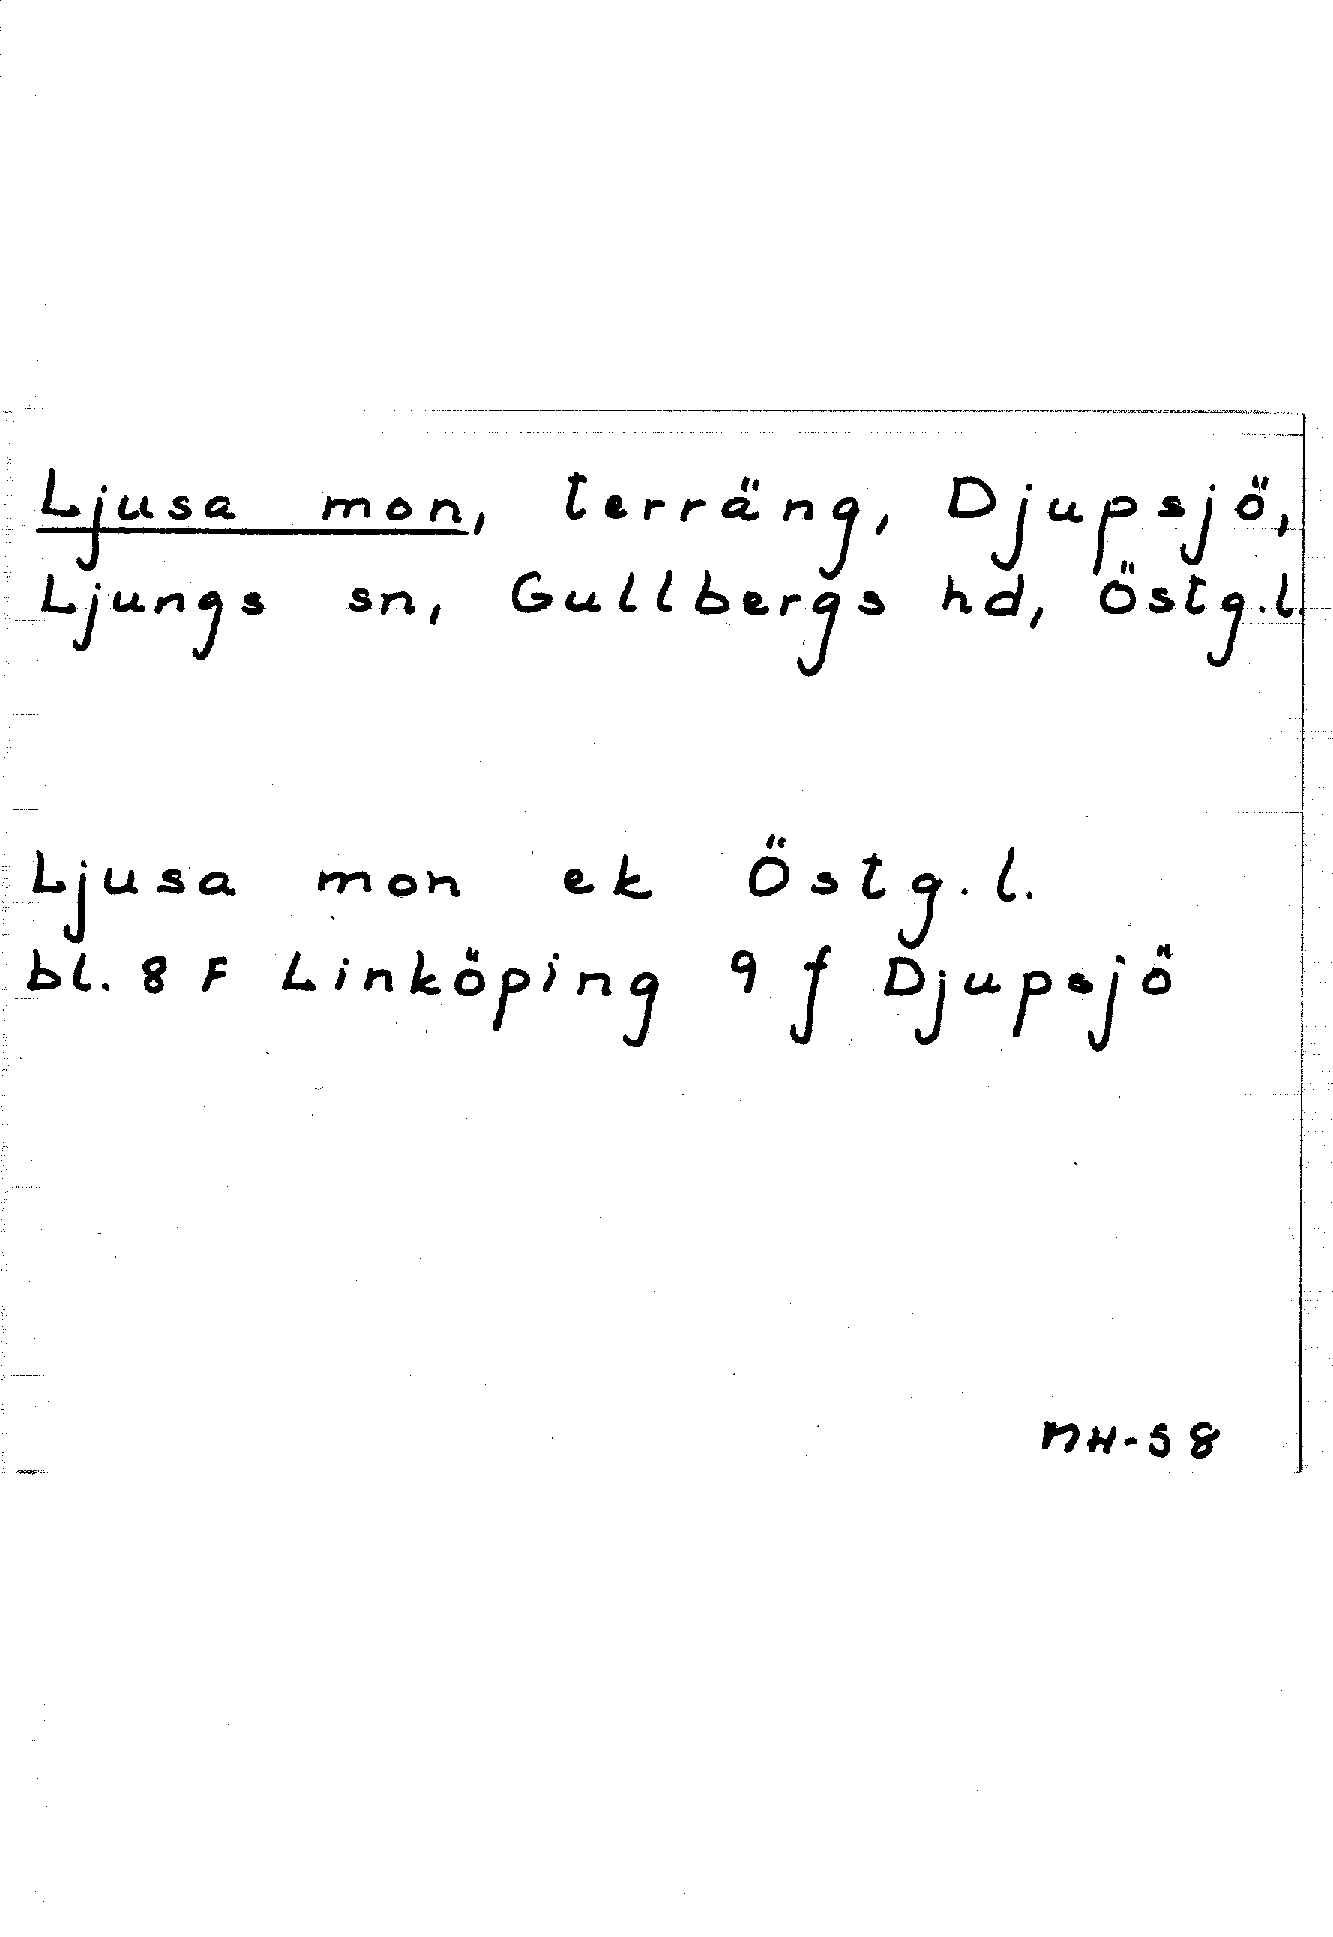 Ljusa mon, terräng, Djupsjö,
Ljungs sn, Gullbergs hd, Östg.l.
Ljusa mon ek Östg.l.
bl. 8 F Linköping 9 f Djupsjö
MH-58